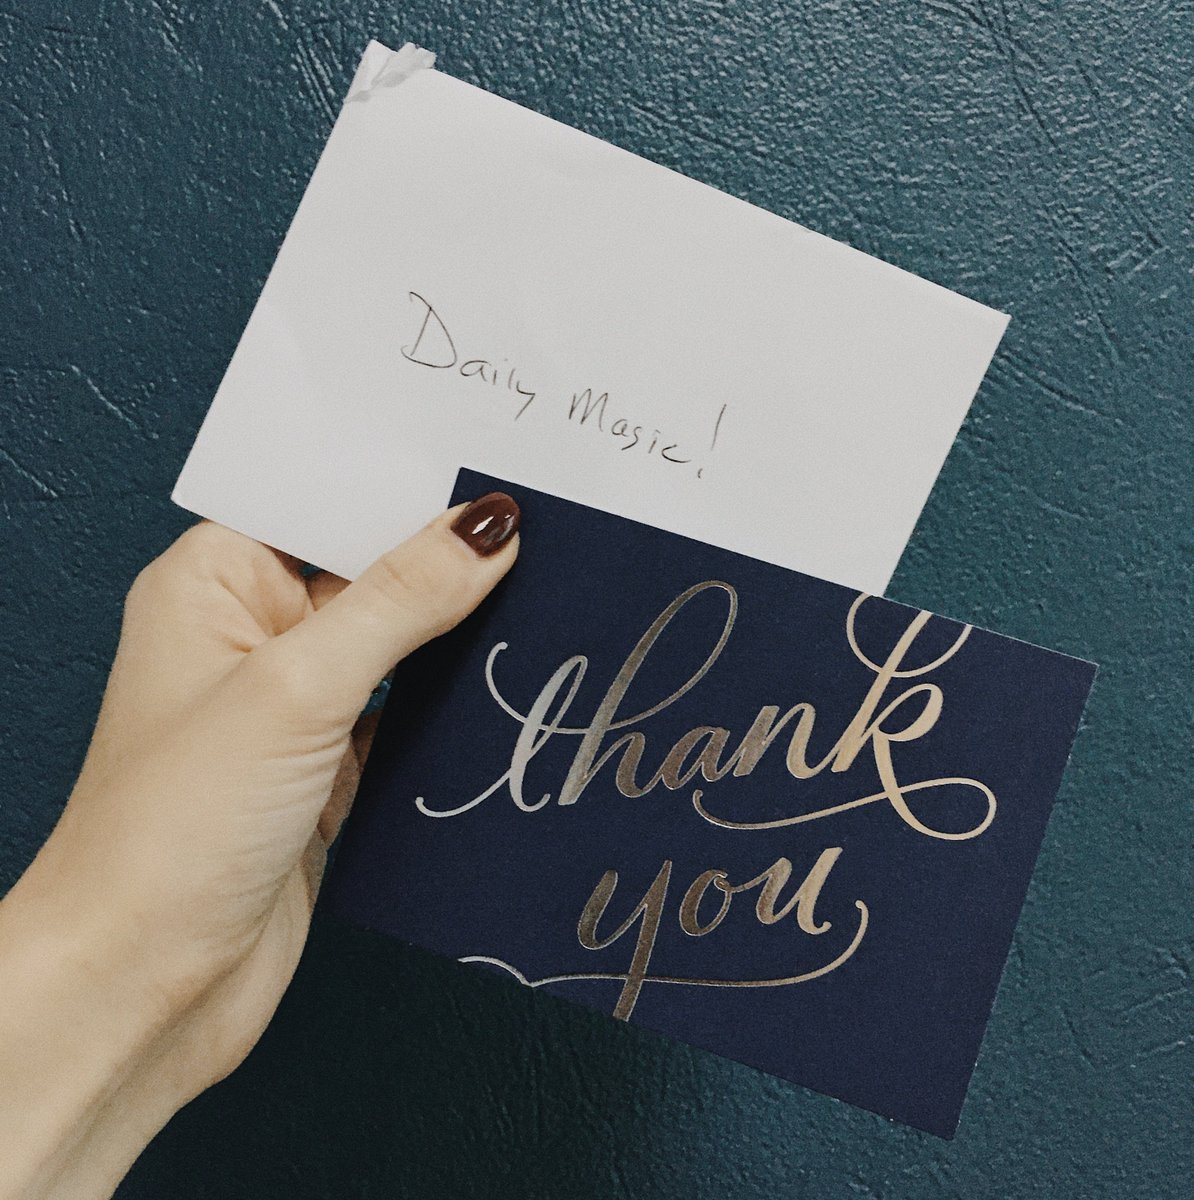 Daily Magic!
thank
you